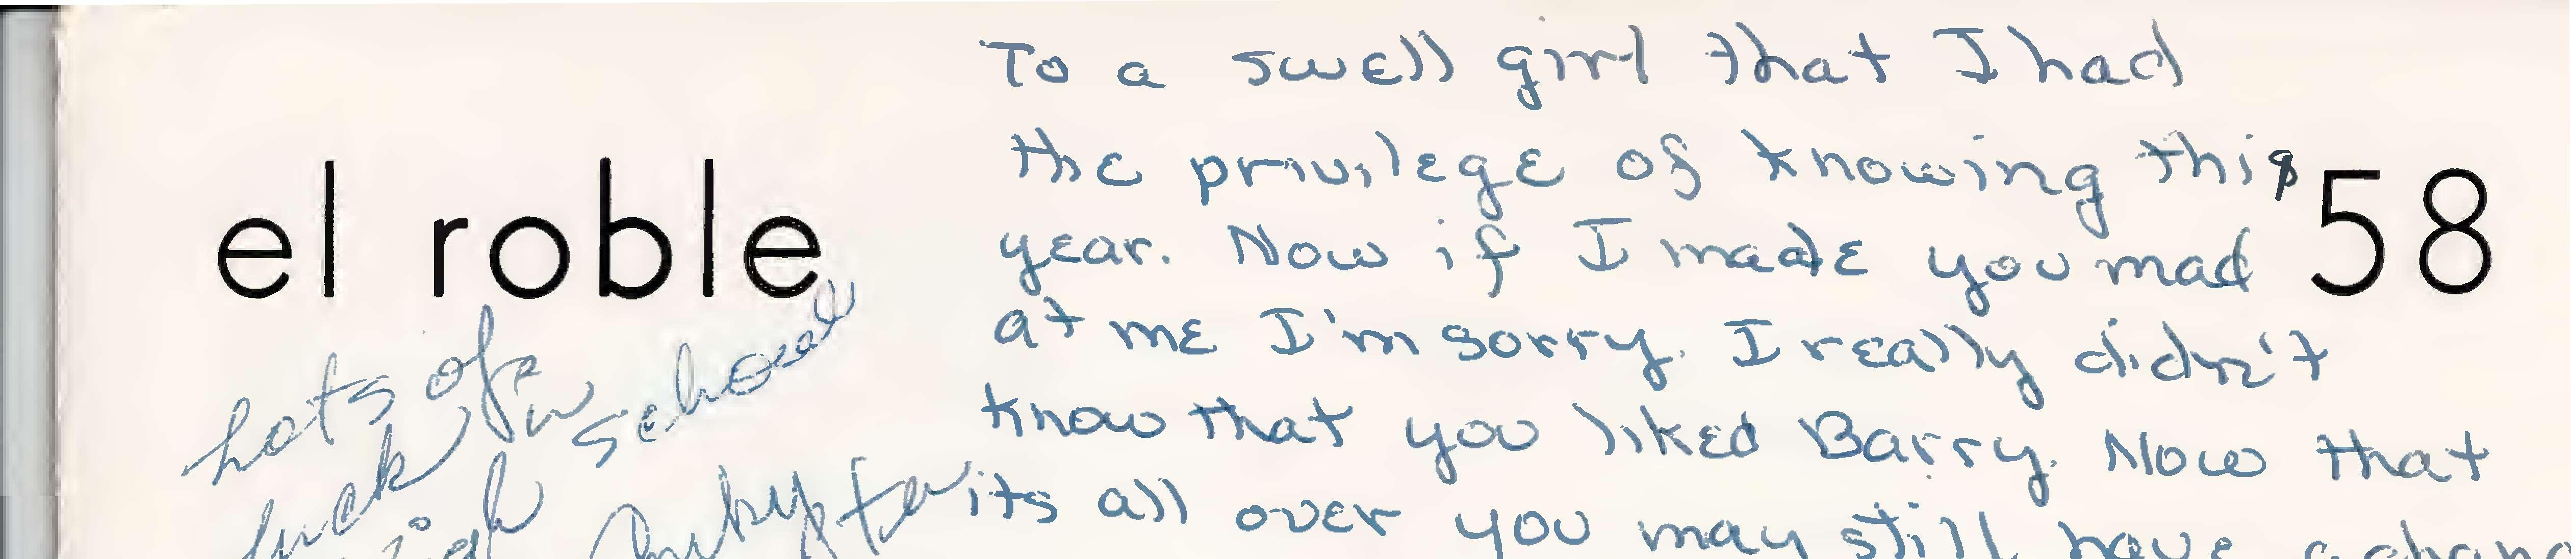 el roble
'58
To a swell girl that I had
the privilege of knowing this
year. Now if I made you mad
at me I'm sorry. I really didn't
know that you liked Barry. Now that
its all over you may still have a
Lots of
luck in school
high